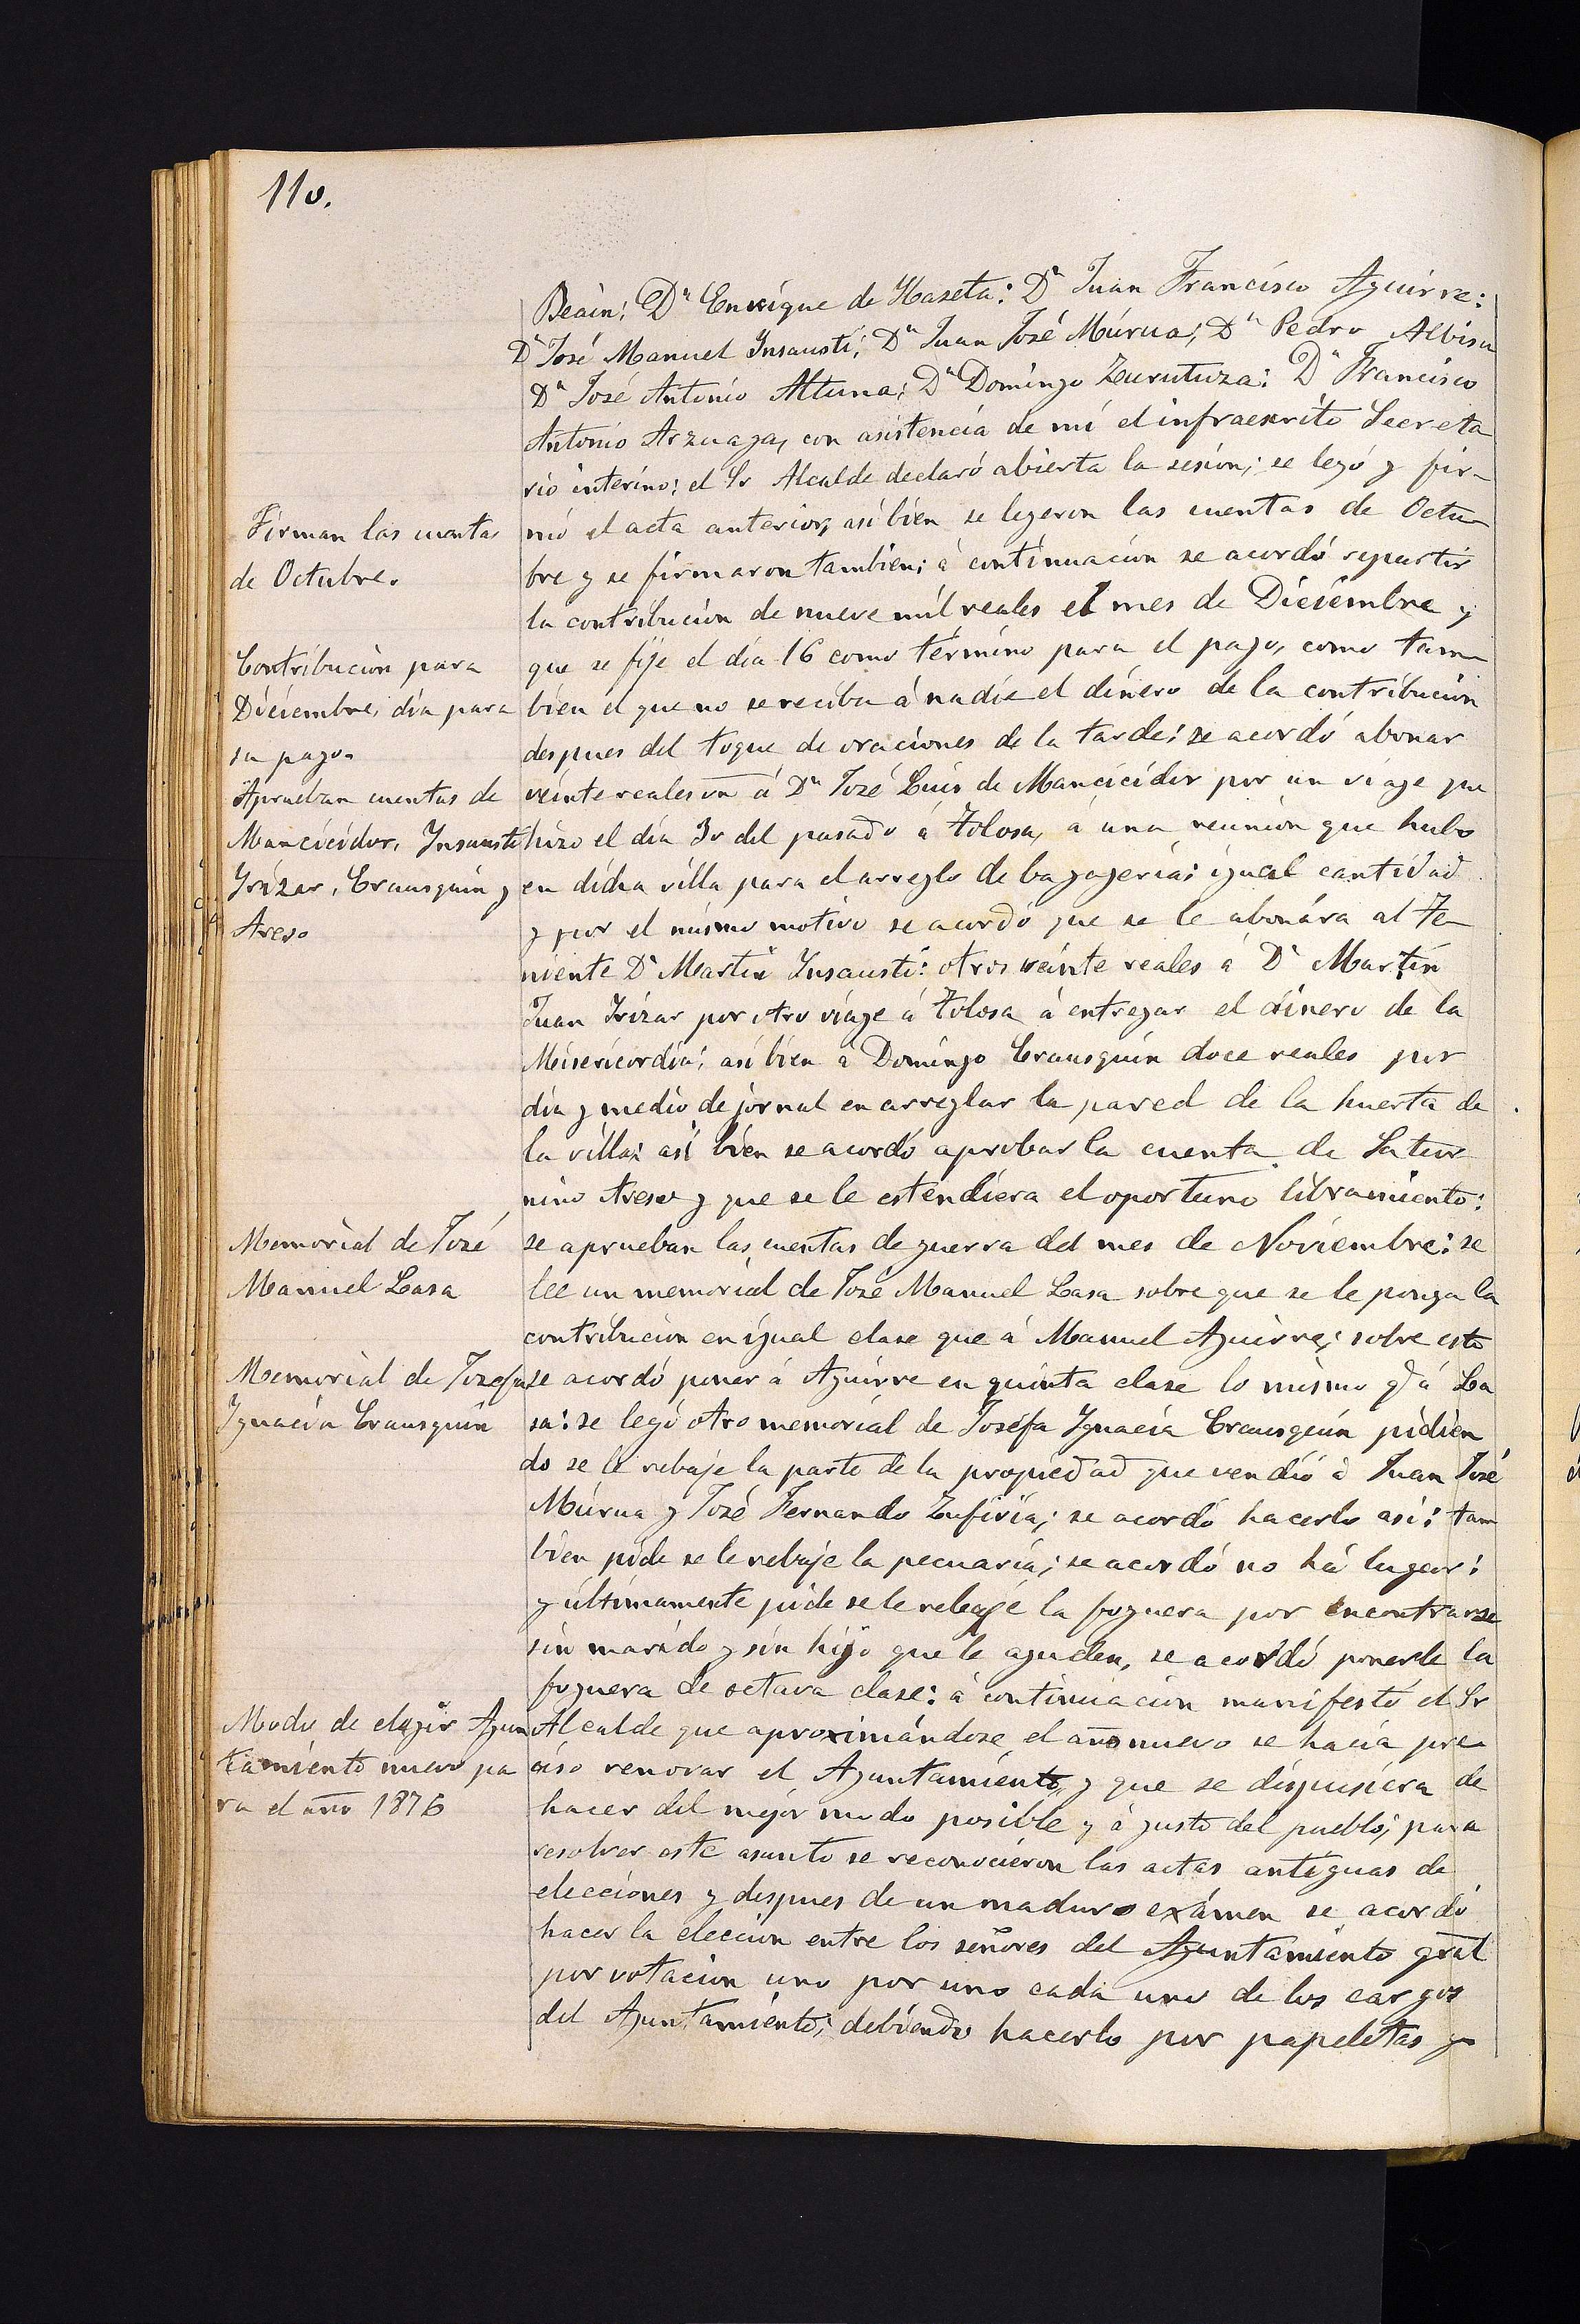 110.
Beain; Dn Enrique de Ilazeta: Dn Juan Francisco Aguirre:
Dn José Manuel Insausti; Dn Juan José Múrua; Dn Pedro Albisu
Dn José Antonio Altuna; Dn Domingo Zurutuza: Dn Francisco
Antonio Arzuaga, con asistencia de mí el infraescrito Secreta
rio interino: el Sr Alcalde declaró abierta la sesión; se leyó y fir-
mó el acta anterior, asi bien se leyeron las cuentas de Octu-
bre y se firmaron tambien; á continuacion se acordó repartir
la contribucion de nueve mil reales el mes de Diciembre y
que se fije el día 16 como término para el pago, como tam-
bien el que no se reciba á nadie el dinero de la contribucion
despues del toque de oraciones de la tarde: se acordó abonar
veinte reales vn á Dn José Luis de Mancicidor por un viage que
hizo el día 30 del pasado á Tolosa, á una reunion que hubo
en dicha villa para el arreglo de bagageria: igual cantidad
y por el mismo motivo se acordó que se le abonára al Te-
niente Dn Martin Insausti: otros veinte reales á Dn Martín
Juan Irizar por otro viage á Tolosa á entregar el dinero de la
Misericordia: asi bien á Domingo Crausquin doce reales por
dia y medio de jornal en arreglar la pared de la huerta de
la villa: asi bien se acordó aprobar la cuenta de Satur
nino Areso y que se le estendiera el oportuno libramiento:
se aprueban las cuentas de guerra del mes de Noviembre: se
lee un memorial de José Manuel Lasa sobre que se le ponga la
contribucion en igual clase que á Manuel Aguirre; sobre esto
se acordó poner á Aguirre en quinta clase lo mismo q á La
sa: se leyó otro memorial de Joséfa Ignacia Crausquin pidien
do se le rebaje la parte de la propiedad que vendió á Juan José
Múrua y José Fernando Zufiria; se acordó hacerlo asi: tam
bien pide se le rebaje la pecuaria; se acordó no há lugar:
y últimamente pide se le rebaje la foguera por encontrarse
sin marido y sin hijo que le ayuden, se acordó ponerle la
foguera de octava clase: á continuacion manifestó el Sr
Alcalde que aproximándose el año nuevo se hacía pre
ciso renovar el Ayuntamiento, y que se dispusiera de
hacer del mejor modo posible y á gusto del pueblo; para
resolver este asunto se reconocieron las actas antiguas de
elecciones y despues de un maduro exámen se acordó
hacer la eleccion entre los señores del Ayuntamiento gral
por votacion uno por uno cada uno de los cargos
del Ayuntamiento; debiendo hacerlo por papeletas y
Firman las cuentas
de Octubre.
Contribucion para
Diciembre, dia para
su pago.
Aprueban cuentas de
Mancicidor, Insausti
Irizar, Crausquin y
Areso
Memorial de José
Manuel Lasa
Memorial de Josefa
Ignacia Crausquin
Modo de elegir Ayun
tamiento nuevo pa
ra el año 1876